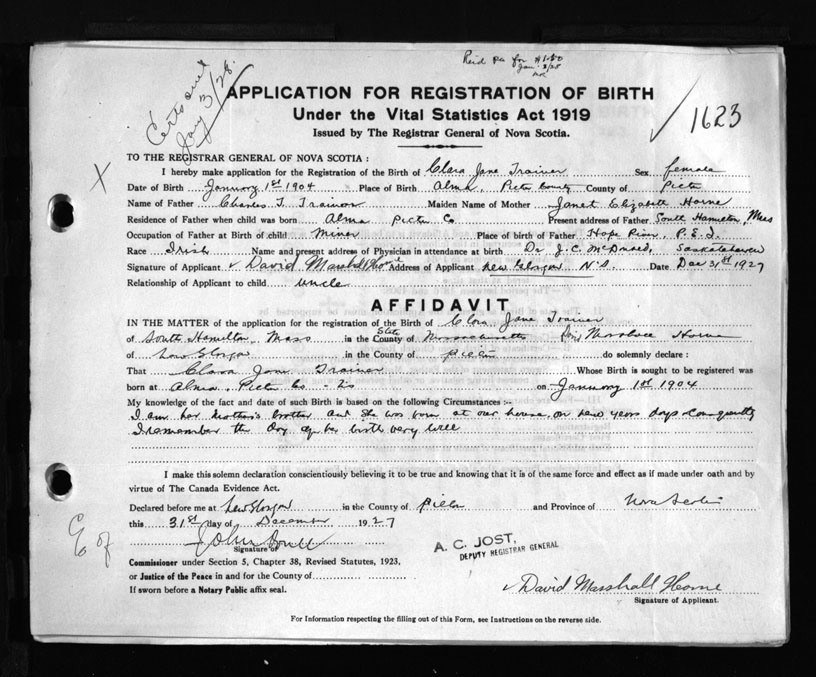 Certs and
Jany 3/28.
Reid pa for $1.50
Jan. 3/28
APPLICATION FOR REGISTRATION OF BIRTH
Under the Vital Statistics Act 1919
Issued by The Registrar General of Nova Scotia.
1623
X
TO THE REGISTRAR GENERAL OF NOVA SCOTIA :
I hereby make application for the Registration of the Birth of Clara Jane Trainor Sex female
Date of Birth January 1st 1904 Place of Birth Alma, Pictu County County of Pictu
Name of Father Charles T. Trainor Maiden Name of Mother Janet Elizabeth Horne
Residence of Father when child was born Alma Pictu Co Present address of Father South Hamilton, Mass
Occupation of Father at Birth of child Miner Place of birth of Father Hope River, P.E.I.
Race Irish Name and present address of Physician in attendance at birth Dr J.C. McDonald, Saskatchewan
Signature of Applicant David Marshall Horne Address of Applicant New Glasgow N.S. Date Dec 31st 1927
Relationship of Applicant to child uncle
AFFIDAVIT
IN THE MATTER of the application for the registration of the Birth of Clara Jane Trainor
of South Hamilton, Mass in the County of State Massachusetts David Marshall Horne
of New Glasgow in the County of Pictu do solemnly declare :
That Clara Jane Trainor Whose Birth is sought to be registered was
born at Alma, Pictu Co - N.S on January 1st 1904
My knowledge of the fact and date of such Birth is based on the following Circumstances :-
I am her mother's brother and she was born at our house, on New Years day & consequently
I remember the day of her birth very well
I make this solemn declaration conscientiously believing it to be true and knowing that it is of the same force and effect as if made under oath and by
virtue of The Canada Evidence Act.
Declared before me at New Glasgow in the County of Pictu and Province of Nova Scotia
this 31st day of December 1927
E of
John
Signature of
A. C. JOST,
DEPUTY REGISTRAR GENERAL
Commissioner under Section 5, Chapter 38, Revised Statutes, 1923.
or Justice of the Peace in and for the County of
If sworn before a Notary Public affix seal.
David Marshall Horne
Signature of Applicant.
For Information respecting the filling out of this Form, see Instructions on the reverse side.